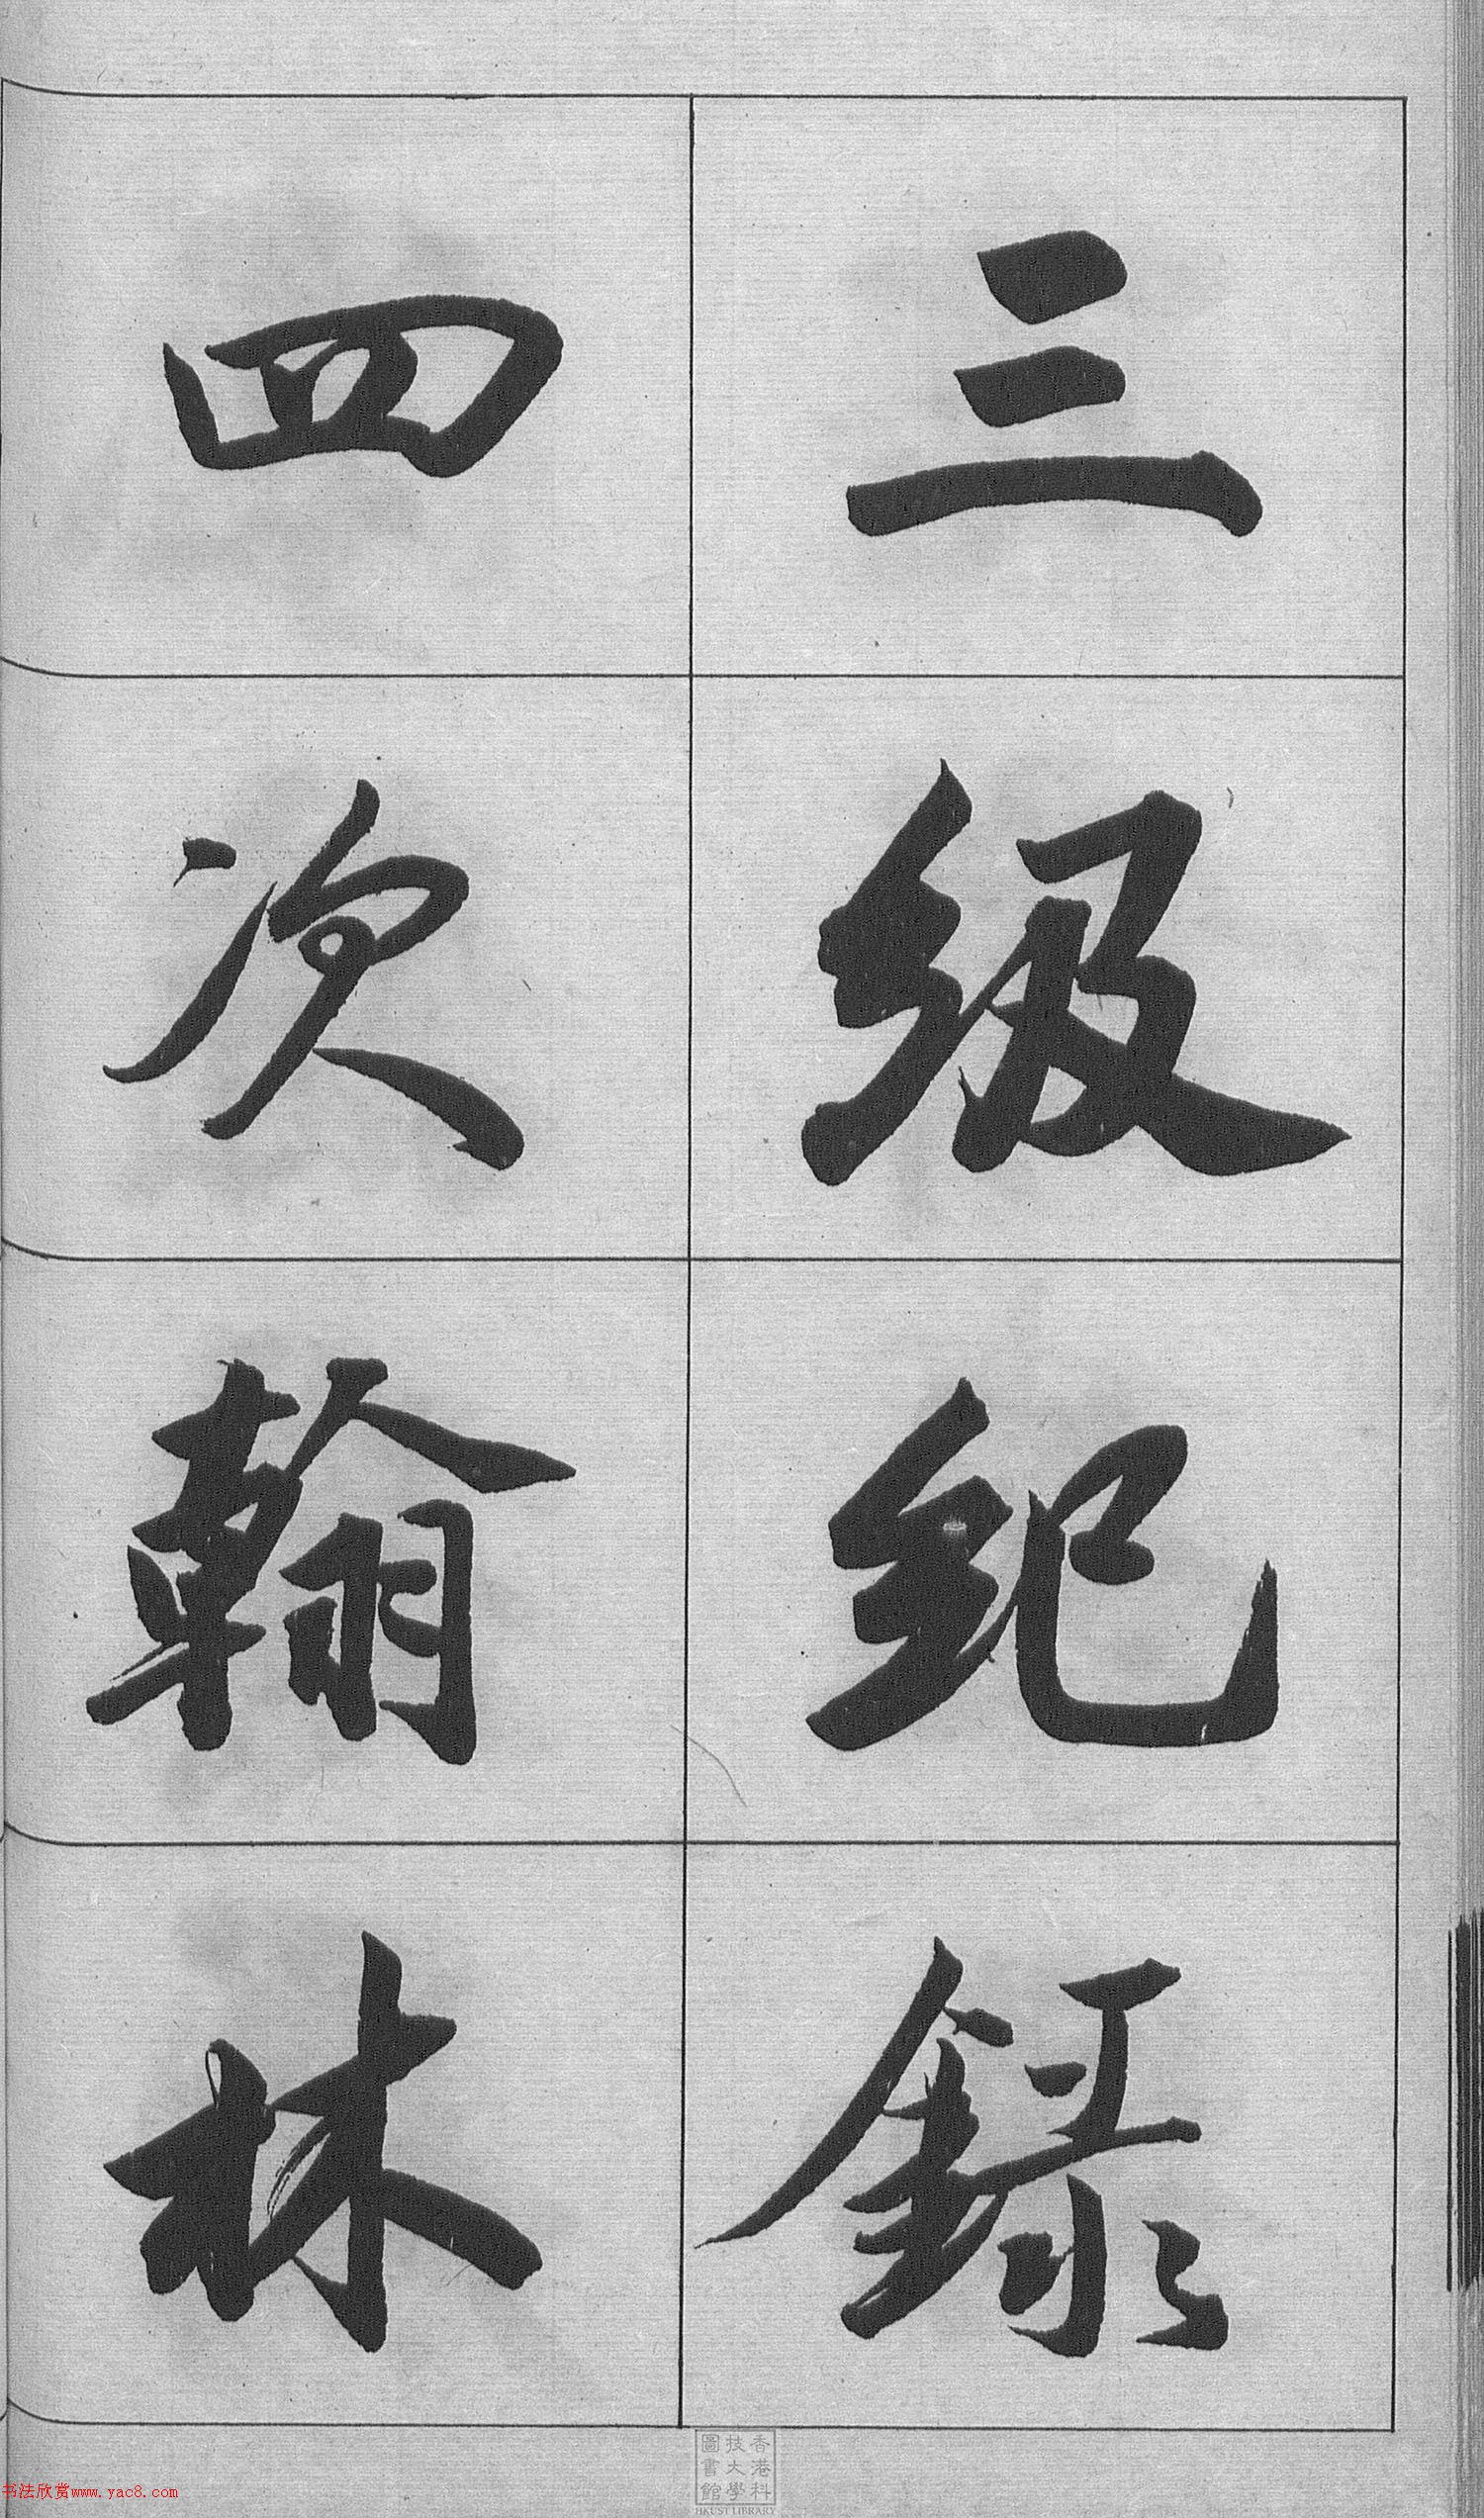 三級紀錄
四次翰林
香港科
技大學
圖書館
HKUST LIBRARY
书法欣赏www.yac8.com